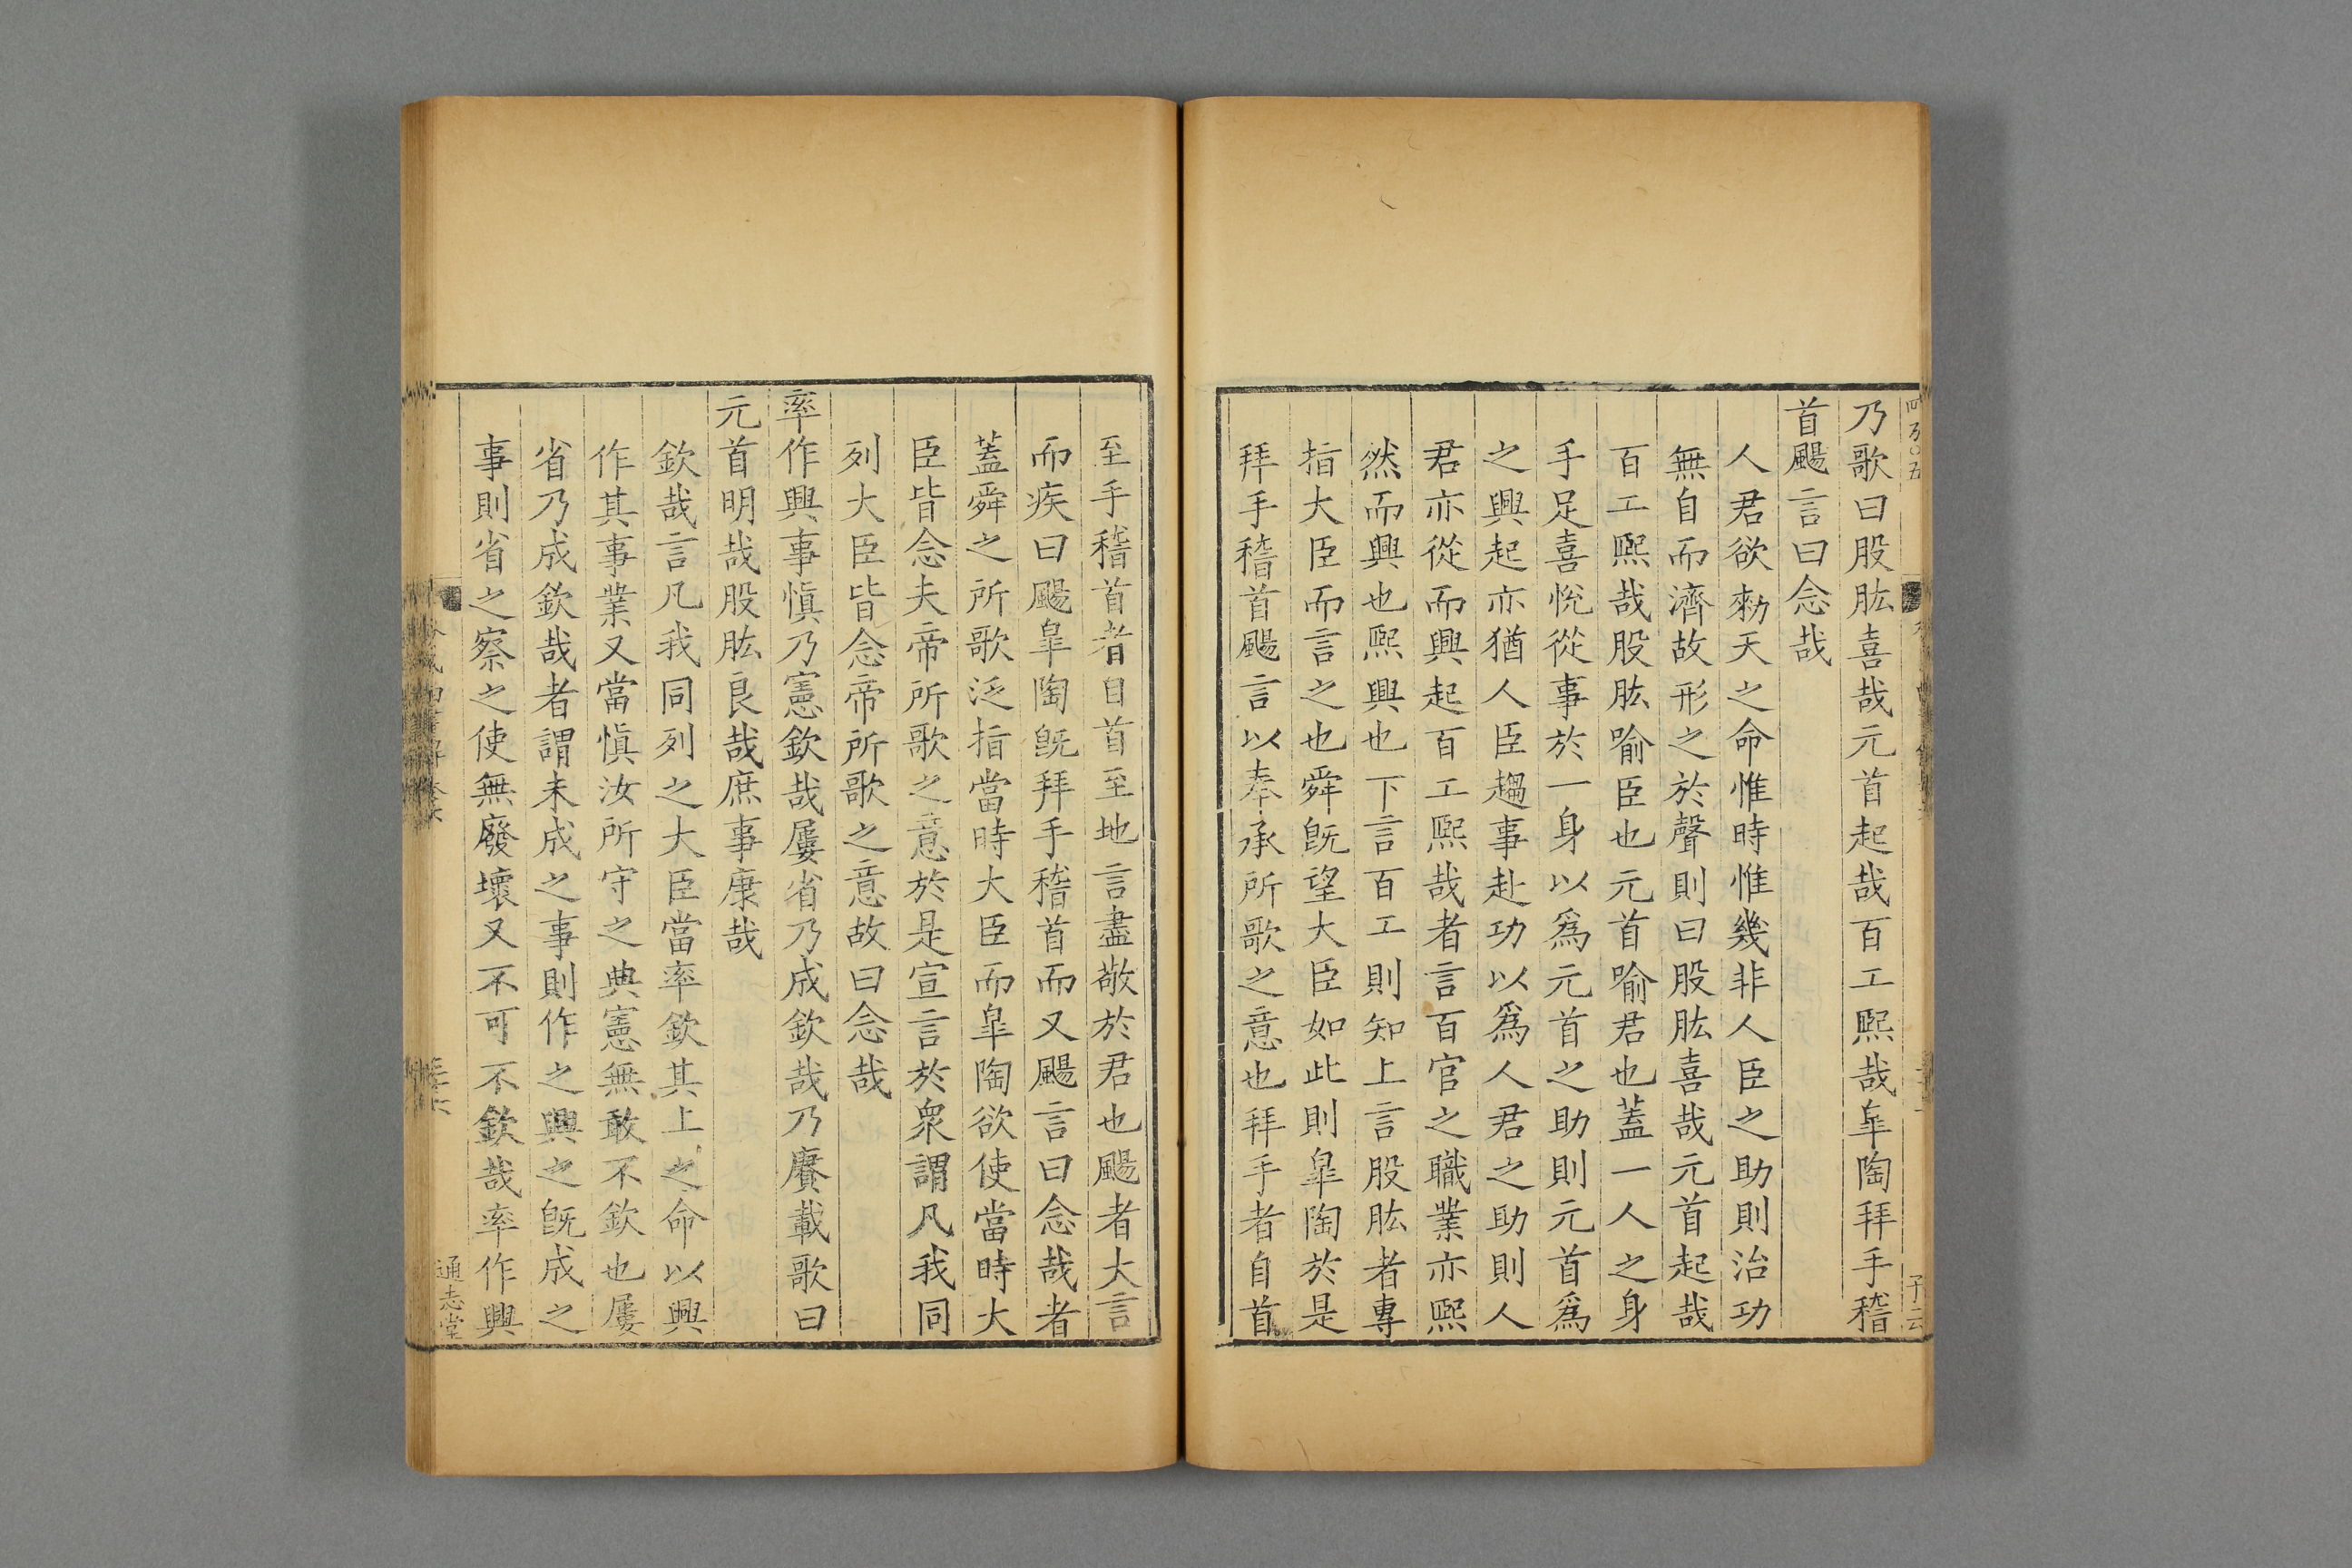 乃歌曰股肱喜哉元首起哉百工熈哉皐陶拜手稽
首颺言曰念哉
人君欲勑天之命惟時惟幾非人臣之助則治功
無自而濟故形之於聲則曰股肱喜哉元首起哉
百工熈哉股肱喻臣也元首喻君也蓋一人之身
手足喜悅從事於一身以爲元首之助則元首爲
之興起亦猶人臣趨事赴功以爲人君之助則人
君亦從而興起百工熈哉者言百官之職業亦熈
然而興也熈興也下言百工則知上言股肱者專
指大臣而言之也舜旣望大臣如此則皐陶於是
拜手稽首颺言以奉承所歌之意也拜手者自首
至手稽首者自首至地言盡敬於君也颺者大言
而疾曰颺皐陶旣拜手稽首而又颺言曰念哉者
蓋舜之所歌泛指當時大臣而皐陶欲使當時大
臣皆念夫帝所歌之意於是宣言於衆謂凡我同
列大臣皆念帝所歌之意故曰念哉
率作興事愼乃憲欽哉屢省乃成欽哉乃賡載歌曰
元首明哉股肱良哉庶事康哉
欽哉言凡我同列之大臣當率欽其上之命以興
作其事業又當愼汝所守之典憲無敢不欽也屢
省乃成欽哉者謂未成之事則作之興之旣成之
事則省之察之使無廢壞又不可不欽哉率作興
通志堂